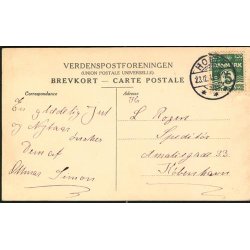 VERDENSPOSTFORENINGEN
(UNION POSTALE UNIVERSELLE)
BREVKORT — CARTE POSTALE
Correspondance
En glædelig Jul
og Nytaar
ønsker
Dem af
Othmar Simon
L Rogers
Speditör
Amaliegade 33
København
23.12.
5